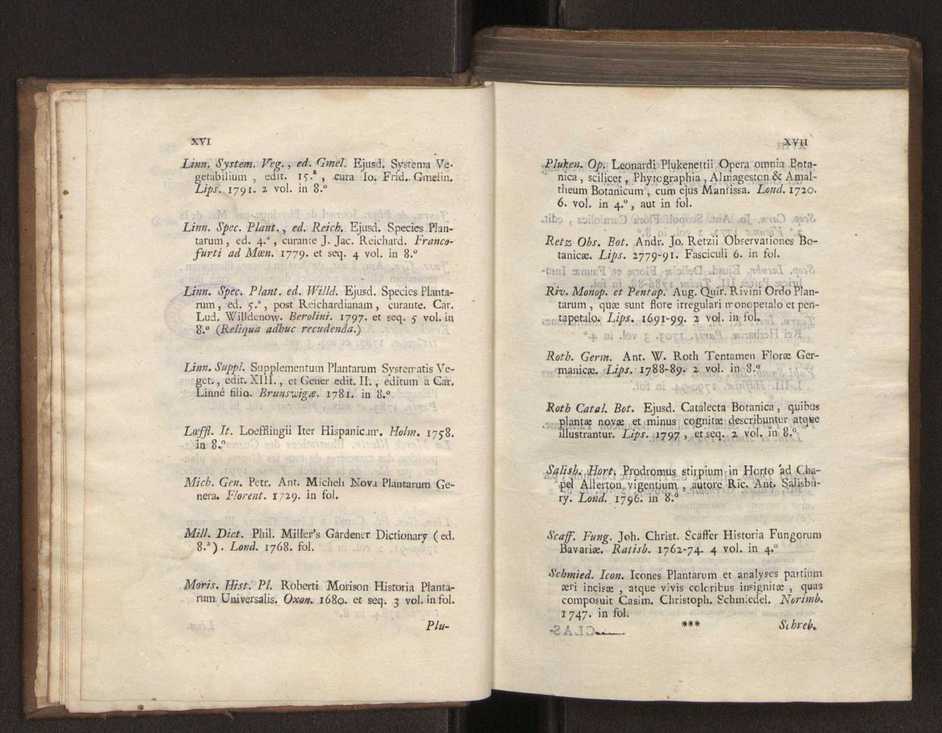 XVI
Linn. System. Veg., ed. Gmel. Ejusd. Systema Ve-
getabilium, edit. 15.ª, cura Jo. Frid. Gmelin.
Lips. 1791. 2 vol. in 8.º
Linn. Spec. Plant., ed. Reich. Ejusd. Species Plan-
tarum, ed. 4.ª, curante J. Jac. Reichard. Franco-
furti ad Mœn. 1779. et seq. 4 vol. in 8.º
Linn. Spec. Plant. ed. Willd. Ejusd. Species Planta-
rum, ed. 5.ª, post Reichardianam, curante. Car.
Lud. Willdenow. Berolini. 1797. et seq. 5 vol. in
8.º (Reliqua adhuc recudenda.)
Linn. Suppl. Supplementum Plantarum Systematis Ve-
get., edit. XIII., et Gener edit. II., editum a Car.
Linné filio. Brunswigæ. 1781. in 8.º
Lœffl. It. Loefflingii Iter Hispanicum. Holm. 1758.
in 8.º
Mich. Gen. Petr. Ant. Micheli Nova Plantarum Ge-
nera. Florent. 1729. in fol.
Mill. Dict. Phil. Miller's Gardener Dictionary (ed.
8.ª). Lond. 1768. fol.
Moris. Hist. Pl. Roberti Morison Historia Planta-
rum Universalis. Oxon. 1680. et seq. 3 vol. in fol.
Plu-
XVII
Pluken. Op. Leonardi Plukenettii Opera omnia Bota-
nica, scilicet, Phytographia, Almageston & Amal-
theum Botanicum, cum ejus Mantissa. Lond. 1720.
6. vol. in 4.º, aut in fol.
Retz Obs. Bot. Andr. Jo. Retzii Observationes Bo-
tanicæ. Lips. 2779-91. Fasciculi 6. in fol.
Riv. Monop. et Pentap. Aug. Quir. Rivini Ordo Plan-
tarum, quæ sunt flore irregulari monopetalo et pen-
tapetalo. Lips. 1691-99. 2 vol. in fol.
Roth. Germ. Ant. W. Roth Tentamen Floræ Ger-
manicæ. Lips. 1788-89. 2 vol. in 8.º
Roth Catal. Bot. Ejusd. Catalecta Botanica, quibus
plantæ novæ et minus cognitæ describuntur atque
illustrantur. Lips. 1797, et seq. 2 vol. in 8.º
Salish. Hort. Prodromus stirpium in Horto ad Cha-
pel Allerton vigentium, autore Ric. Ant. Salisbu-
ry. Lond. 1796. in 8.º
Scæff. Fung. Joh. Christ. Scäffer Historia Fungorum
Bavariæ. Ratisb. 1762-74. 4 vol. in 4.º
Schmied. Icon. Icones Plantarum et analyses partium
æri incisæ, atque vivis coloribus insignitæ, quas
composuit Casim. Christoph. Schmiedel. Norimb.
1747. in fol.
*** Schreb.